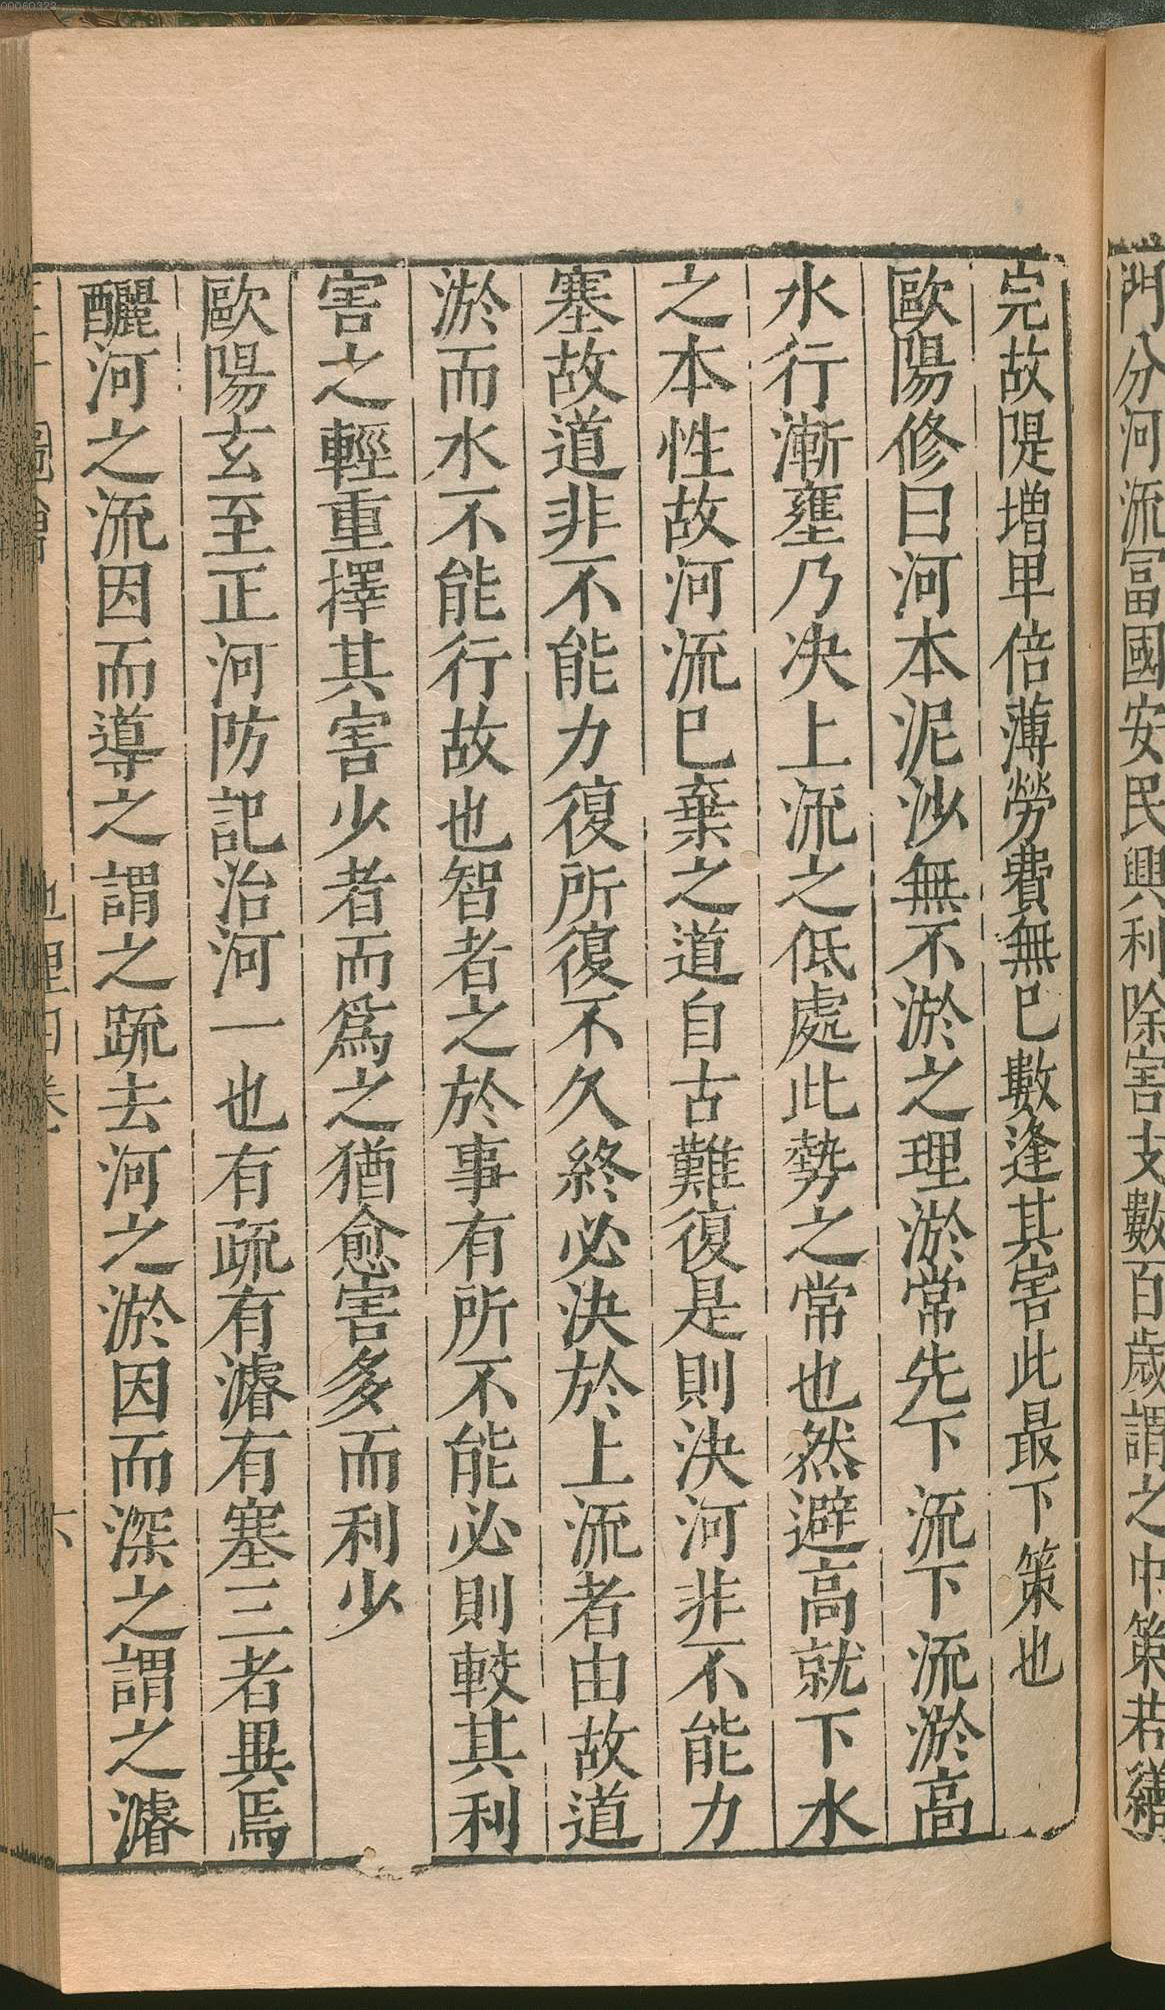 門分河流富國安民興利除害支數百歲謂之中策若繕
完故隄增卑倍薄勞費無已數逢其害此最下策也
歐陽修曰河本泥沙無不淤之理淤常先下流下流淤高
水行漸壅乃决上流之低處此勢之常也然避高就下水
之本性故河流已棄之道自古難復是則決河非不能力
塞故道非不能力復所復不久終必決於上流者由故道
淤而水不能行故也智者之於事有所不能必則較其利
害之輕重擇其害少者而為之猶愈害多而利少
歐陽玄至正河防記治河一也有疏有濬有塞三者異焉
釃河之流因而導之謂之疏去河之淤因而深之謂之濬
圖會
地理四卷
六
00060322